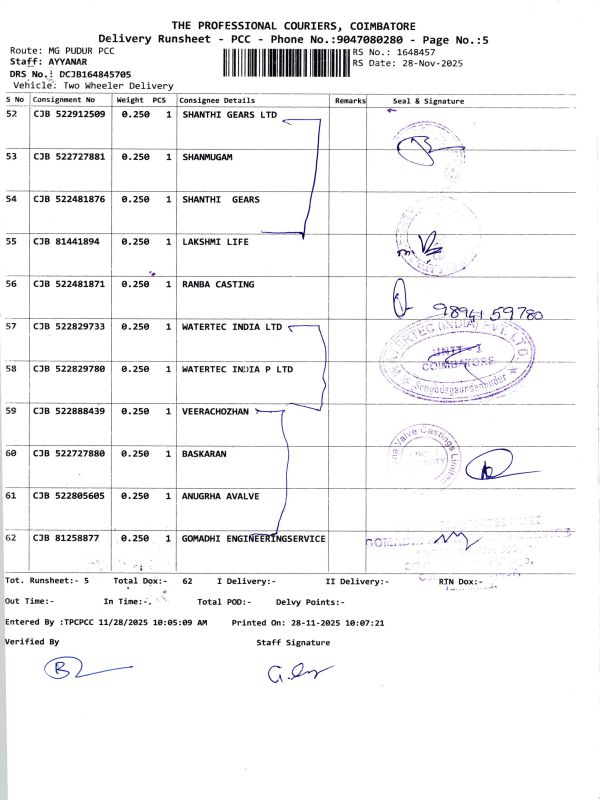 THE PROFESSIONAL COURIERS, COIMBATORE
Delivery Runsheet - PCC - Phone No.:9047080280 - Page No.:5
Route: MG PUDUR PCC RS No.: 1648457
Staff: AYYANAR RS Date: 28-Nov-2025
DRS No.: DCJB164845705
Vehicle: Two Wheeler Delivery
S No Consignment No Weight PCS Consignee Details Remarks Seal & Signature
52 CJB 522912509 0.250 1 SHANTHI GEARS LTD
53 CJB 522727881 0.250 1 SHANMUGAM
54 CJB 522481876 0.250 1 SHANTHI GEARS
55 CJB 81441894 0.250 1 LAKSHMI LIFE
56 CJB 522481871 0.250 1 RANBA CASTING
9894159780
57 CJB 522829733 0.250 1 WATERTEC INDIA LTD
WATERTEC (INDIA) PVT. LTD
UNIT - I
COIMBATORE
58 CJB 522829780 0.250 1 WATERTEC INDIA P LTD
59 CJB 522888439 0.250 1 VEERACHOZHAN
Valve Castings Limited
60 CJB 522727880 0.250 1 BASKARAN
61 CJB 522805605 0.250 1 ANUGRHA AVALVE
62 CJB 81258877 0.250 1 GOMADHI ENGINEERINGSERVICE
Tot. Runsheet:- 5 Total Dox:- 62 I Delivery:- II Delivery:- RTN Dox:-
Out Time:- In Time:- Total POD:- Delvy Points:-
Entered By :TPCPCC 11/28/2025 10:05:09 AM Printed On: 28-11-2025 10:07:21
Verified By Staff Signature